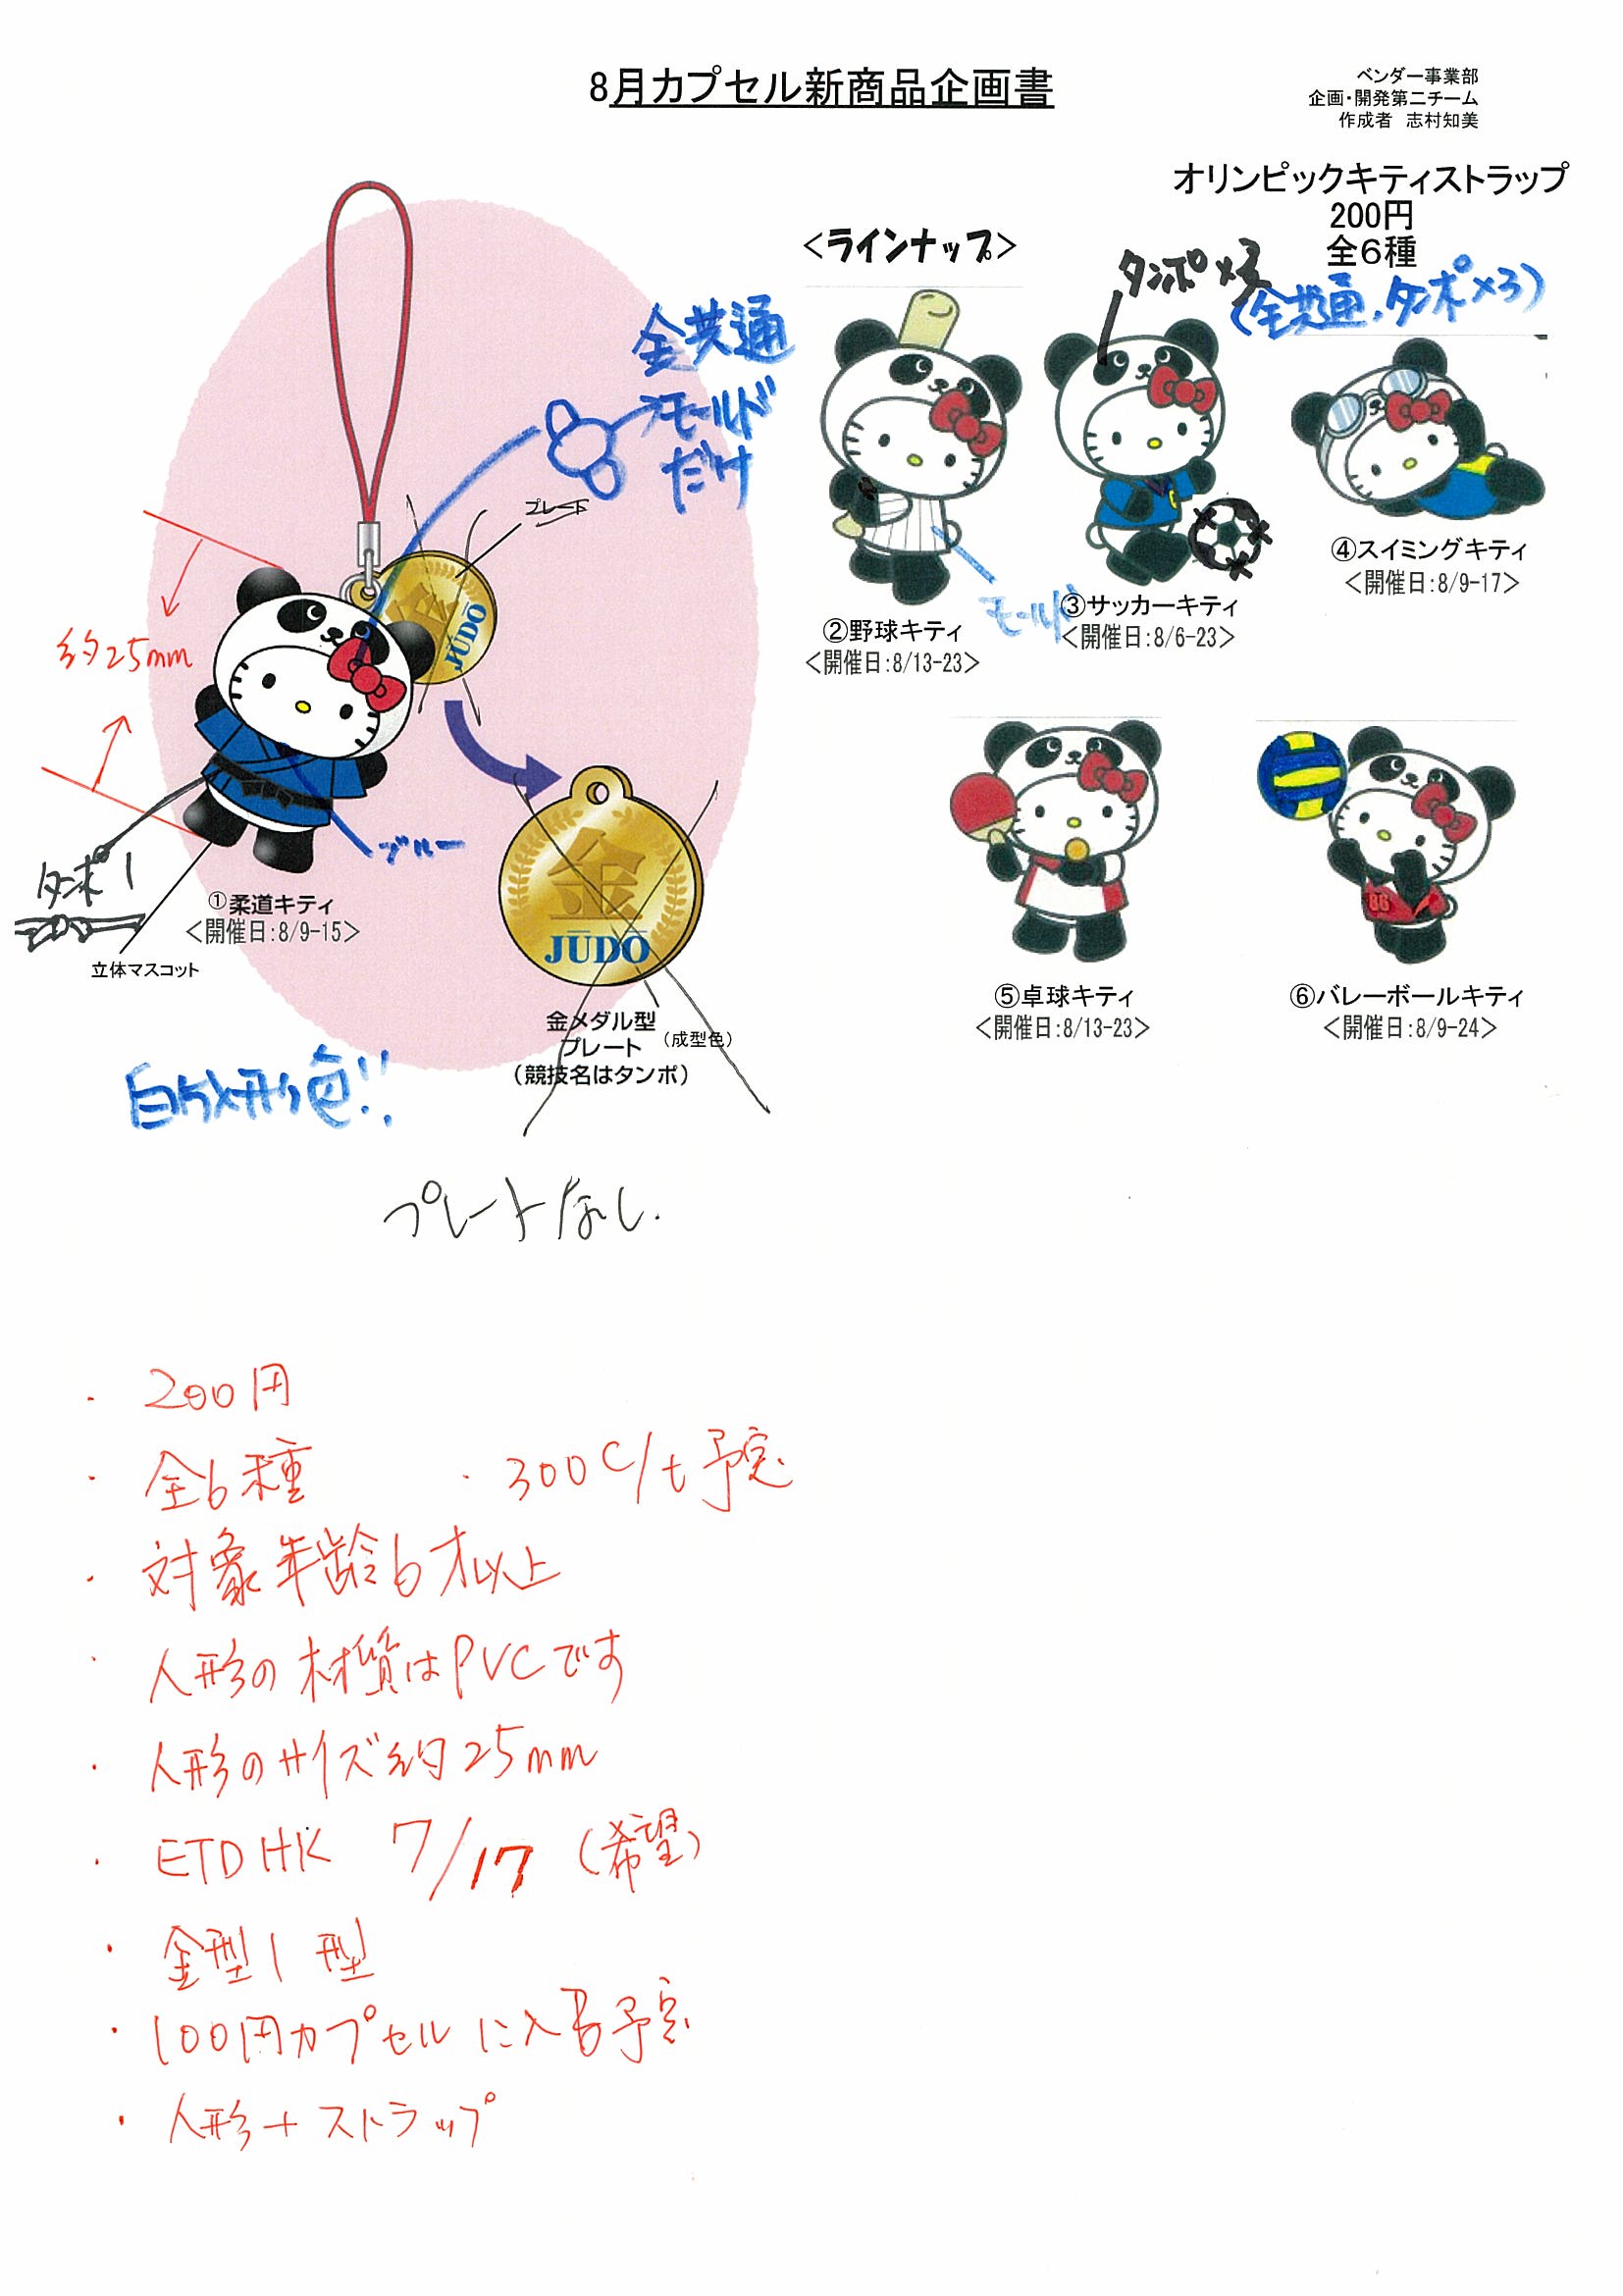 8月カプセル新商品企画書
ベンダー事業部
企画・開発第二チーム
作成者 志村知美
オリンピックキティストラップ
200円
全6種
(全共通、タンポ×3)
<ラインナップ>
タンポ×3
全共通
モールド
だけ
プレート
金
JŪDŌ
約25mm
ブルー
タンポ1
①柔道キティ
<開催日:8/9-15>
立体マスコット
金
JŪDŌ
金メダル型
プレート
(成型色)
(競技名はタンポ)
白成形色!!
プレートなし.
モールド
②野球キティ
<開催日:8/13-23>
③サッカーキティ
<開催日:8/6-23>
④スイミングキティ
<開催日:8/9-17>
⑤卓球キティ
<開催日:8/13-23>
86
⑥バレーボールキティ
<開催日:8/9-24>
・200円
・全6種
・300C/t予定
・対象年齢6才以上
・人形の材質はPVCです
・人形のサイズ約25mm
・ETD HK 7/17 (希望)
・金型1型
・100円カプセルに入る予定
・人形+ストラップ